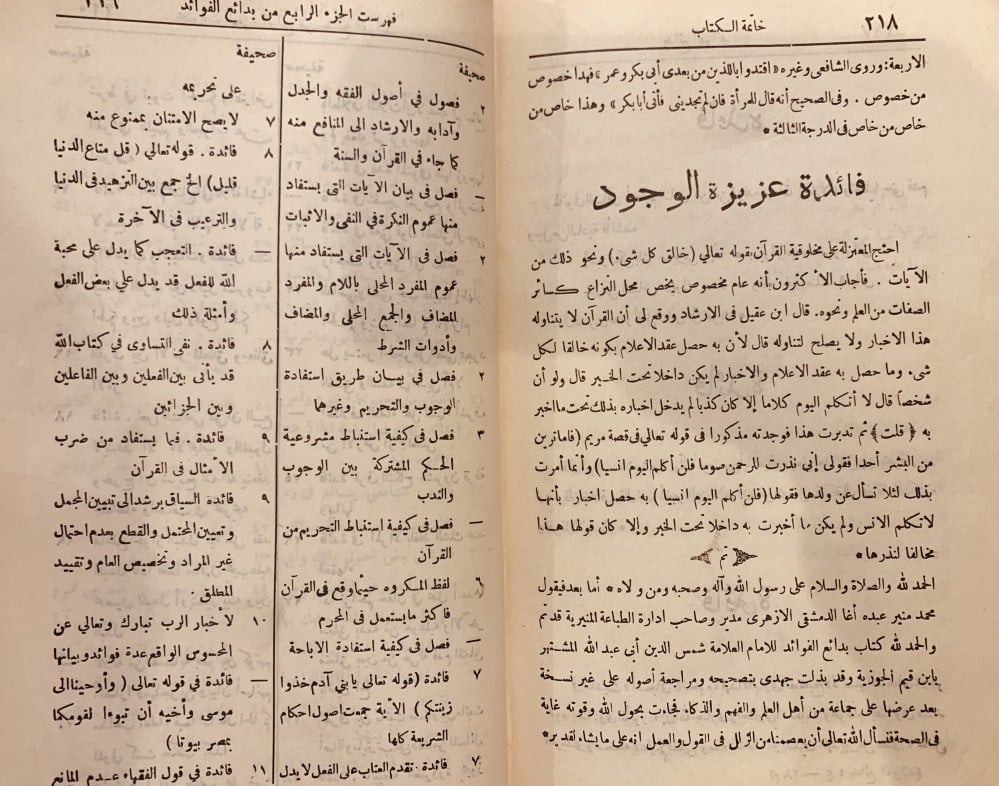 ٢١٨
خاتمة الكتاب
الاربعة: وروى الشافعى وغيره «اقتدوا باللذين من بعدى أبى بكر وعمر» فهذا خصوص
من خصوص . وفى الصحيح أنه قال للمرأة فان لم تجدينى فأتى أبا بكر» وهذا خاص من
خاص من خاص فى الدرجة الثالثة *
فائدة عزيزة الوجود
احتج المعتزلة على مخلوقية القرآن بقوله تعالي (خالق كل شىء) ونحو ذلك من
الآيات . فأجاب الأكثرون بأنه عام مخصوص يخص محل النزاع كسائر
الصفات من العلم ونحوه. قال ابن عقيل فى الارشاد ووقع لى أن القرآن لا يتناوله
هذا الاخبار ولا يصلح لتناوله قال لأن به حصل عقد الاعلام بكونه خالقا لكل
شىء وما حصل به عقد الاعلام والاخبار لم يكن داخلا تحت الخبر قال ولو أن
شخصاً قال لا أتكلم اليوم كلاما إلا كان كذبا لم يدخل اخباره بذلك تحت ما اخبر
به ﴿ قلت ﴾ ثم تدبرت هذا فوجدته مذكورا فى قوله تعالي فى قصة مريم (فاما ترين
من البشر أحدا فقولى إنى نذرت للرحمن صوما فلن أكلم اليوم انسيا) وأنما أمرت
بذلك لئلا تسأل عن ولدها فقولها (فلن أكلم اليوم انسيا) به حصل اخبار بأنها
لا تكلم الانس ولم يكن ما أخبرت به داخلا تحت الخبر وإلا كان قولها هذا
مخالفا لنذرها *
تم
الحمد لله والصلاة والسلام على رسول الله وآله وصحبه ومن والاه * أما بعد فيقول
محمد منير عبده أغا الدمشقى الازهرى مدير وصاحب ادارة الطباعة المنيرية قد تم
والحمد لله كتاب بدائع الفوائد للامام العلامة شمس الدين أبى عبد الله المشتهر
بابن قيم الجوزية وقد بذلت جهدى بتصحيحه ومراجعة أصوله على غير نسخة
بعد عرضها على جماعة من أهل العلم والفهم والذكاء. فجاءت بحول الله وقوته غاية
فى الصحة فنسأل الله تعالى أن يعصمنا من الزلل فى القول والعمل انه على ما يشاء لقدير *
فهرست الجزء الرابع من بدائع الفوائد
صحيفة
٢ فصول في أصول الفقه والجدل
وآدابه والارشاد الى المنافع منه
كما جاء في القرآن والسنة
— فصل فى بيان الآيات التى يستفاد
منها عموم النكرة في النفى والاثبات
٢ فصل فى الآيات التى يستفاد منها
عموم المفرد المحلى باللام والمفرد
المضاف والجمع المحلى والمضاف
وأدوات الشرط
٢ فصل في بيان طريق استفادة
الوجوب والتحريم وغيرهما
٣ فصل فى كيفية استنباط مشروعية
الحكم المشتركة بين الوجوب
والندب
— فصل فى كيفية استنباط التحريم من
القرآن
٦ لفظ المكروه حيثما وقع فى القرآن
فاكثر ما يستعمل فى المحرم
— فصل فى كيفية استفادة الاباحة
٧ فائدة (قوله تعالى يا بني آدم خذوا
زينتكم) الأية جمعت اصول احكام
الشريعة كلها
٧ فائدة. تقدم العتاب على الفعل لا يدل
صحيفة
على تحريمه
٧ لا يصح الامتنان بممنوع منه
٨ فائدة . قوله تعالي (قل متاع الدنيا
قليل) الخ جمع بين التزهيد فى الدنيا
والترغيب فى الآخرة
— فائدة . التعجب كما يدل على محبة
الله للفعل قد يدل علي بعض الفعل
وأمثلة ذلك
٨ فائدة . نفى التساوى في كتاب الله
قد يأتى بين الفعلين وبين الفاعلين
وبين الجزائين
٩ فائدة . فيما يستفاد من ضرب
الأمثال فى القرآن
٩ فائدة السياق يرشد الى تبيين المجمل
وتعيين المحتمل والقطع بعدم احتمال
غير المراد وتخصيص العام وتقييد
المطلق .
١٠ لأخبار الرب تبارك وتعالي عن
المحسوس الواقع عدة فوائد وبيانها
— فائدة في قوله تعالى (وأوحينا الى
موسى وأخيه أن تبوءا لقومكما
بمصر بيوتا)
١١ فائدة في قول الفقهاء عدم المانع